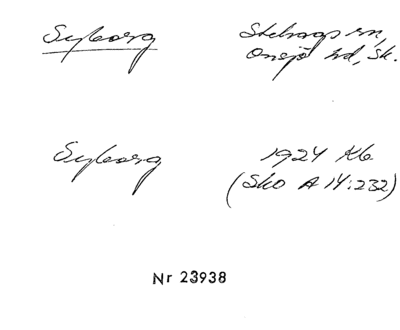 Syborg
Stehags sn,
Onsjö hd, Sk.
Syborg
1924 Kb
(Sko A 14:232)
Nr 23938